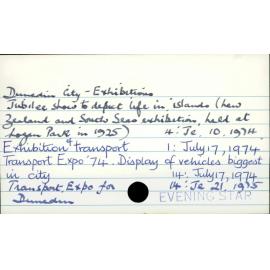 Dunedin City - Exhibitions
Jubilee show to depict life in islands (New
Zealand and South Seas exhibition, held at
Logan Park in 1925) 4: Je. 10, 1974
Exhibition & Transport 1: July 17, 1974
Transport Expo '74. Display of vehicles biggest
in city 14: July 17, 1974
Transport Expo for 14: Je 21, 1975
Dunedin
EVENING STAR